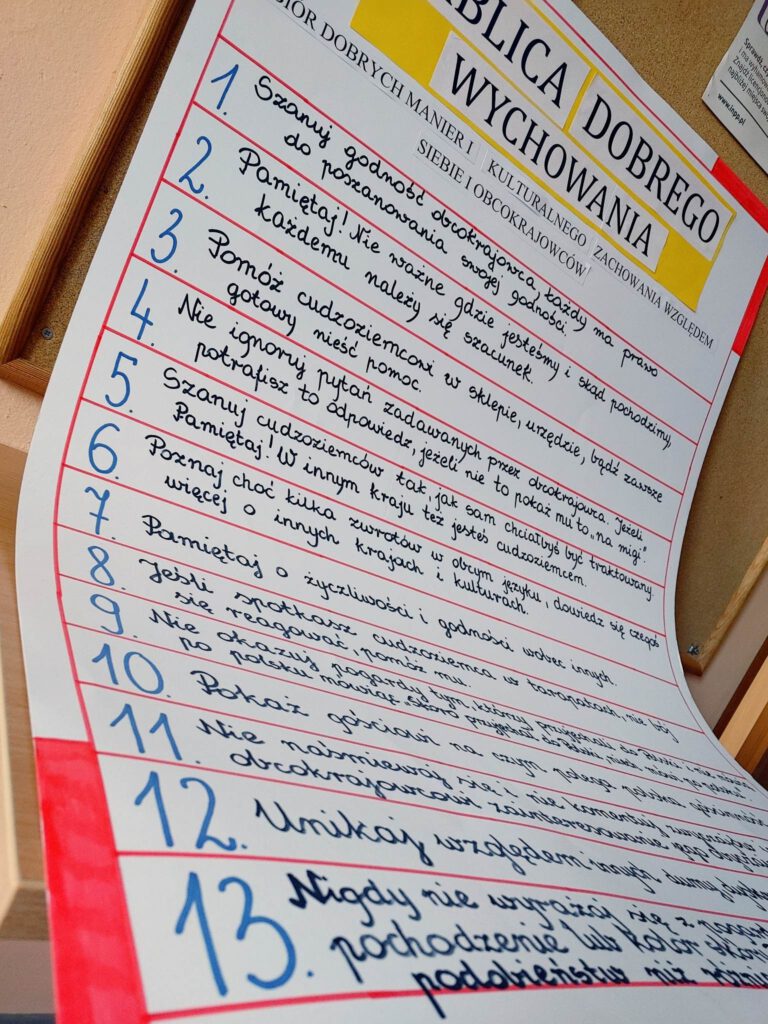 TABLICA DOBREGO
WYCHOWANIA
ZBIÓR DOBRYCH MANIER I KULTURALNEGO ZACHOWANIA WZGLĘDEM
SIEBIE I OBCOKRAJOWCÓW
1. Szanuj godność obcokrajowca, każdy ma prawo
do poszanowania swojej godności.
2. Pamiętaj! Nie ważne gdzie jesteśmy i skąd pochodzimy,
każdemu należy się szacunek.
3. Pomóż cudzoziemcowi w sklepie, urzędzie, bądź zawsze
gotowy nieść pomoc.
4. Nie ignoruj pytań zadawanych przez obcokrajowca. Jeżeli
potrafisz to odpowiedz, jeżeli nie to pokaż mu to „na migi".
5. Szanuj cudzoziemców tak, jak sam chciałbyś być traktowany.
Pamiętaj! W innym kraju też jesteś cudzoziemcem.
6. Poznaj choć kilka zwrotów w obcym języku, dowiedz się czegoś
więcej o innych krajach i kulturach.
7. Pamiętaj o życzliwości i godności wobec innych.
8. Jeśli spotkasz cudzoziemca w tarapatach, nie bój
się reagować, pomóż mu.
9. Nie okazuj pogardy tym, którzy przyjechali do Polski i nie mówią
po polsku mówiąc „Skoro przyjechał do Polski, niech mówi po polsku".
10. Pokaż gościowi na czym polega polska gościnność
11. Nie naśmiewaj się i nie komentuj
obcokrajowcowi zainteresowanie
12. Unikaj względem innych dumy
13. Nigdy nie wyrażaj się z
pochodzenie lub kolor
podobieństw niż
Sprawdź
www.inpp.pl